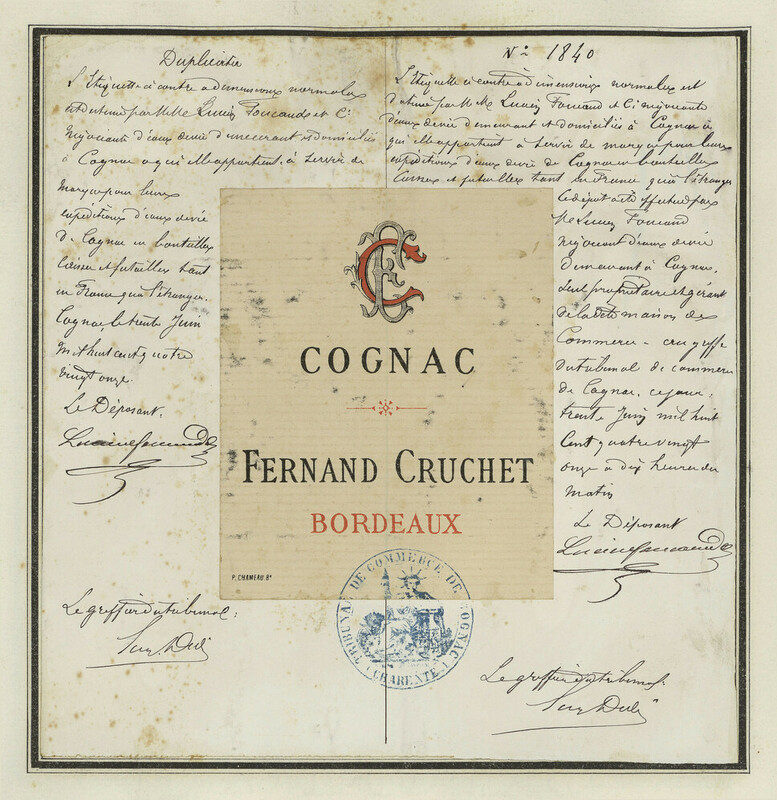 Duplicata
L'Etiquette ci contre a dimensions normales
est destinée par M Me Lucien Foucauds et Cie
Négociants d'eaux de vie demeurant et domiciliés
à Cognac a qui elle appartient, à servir de
marque pour leurs
expéditions d'eaux de vie
de Cognac en bouteilles
Caisses et futailles tant
en France que l'étranger.
Cognac, le trente Juin
Mil huit cent quatre
vingt onze.
Le Déposant,
Le greffier du tribunal:
Nº 1840
L'Etiquette ci contre a dimensions normales est
destinée par M Me Lucien Foucaud et Cie négociants
d'eaux de vie demeurant et domiciliés à Cognac à
qui elle appartient à servir de marque pour leurs
expéditions d'eaux de vie de Cognac en bouteilles
Caisses et futailles tant en France qu'à l'étranger
Ce dépôt a été effectué par
Me Lucien Foucaud
négociant d'eaux de vie
demeurant à Cognac,
seul propriétaire et gérant
de la dite maison de
Commerce - au greffe
du tribunal de commerce
de Cognac, ce jour:
trente Juin mil huit
Cent quatre vingt
onze à dix heures du
matin
Le Déposant
Le greffier du tribunal
COGNAC
FERNAND CRUCHET
BORDEAUX
P. CHAMEAU. Bx
TRIBUNAL DE COMMERCE DE COGNAC
(CHARENTE)